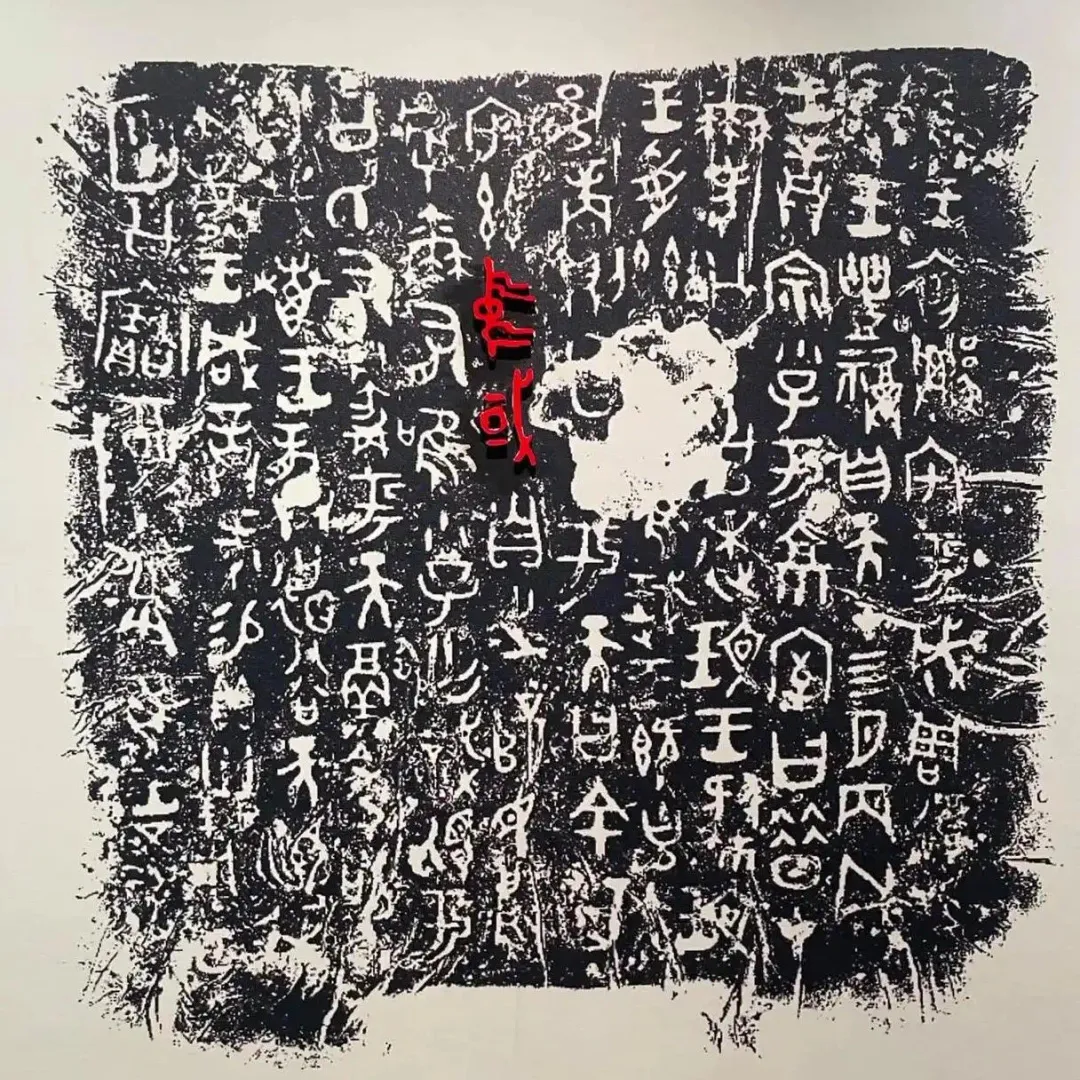 隹王初遷宅于成周復
爯珷王豊福自天才四月丙戌
王誥宗小子于京室曰昔才
爾考公氏克逨玟王肆玟
王受茲大令隹珷王既克大
邑商則廷告于天曰余其
宅茲中或自之乂民烏
虖爾有唯小子亡識視于
公氏有爵于天徹令敬
享哉叀王恭德裕天順我
不敏王咸誥何易貝卅朋用乍
公寶尊彝隹王五祀